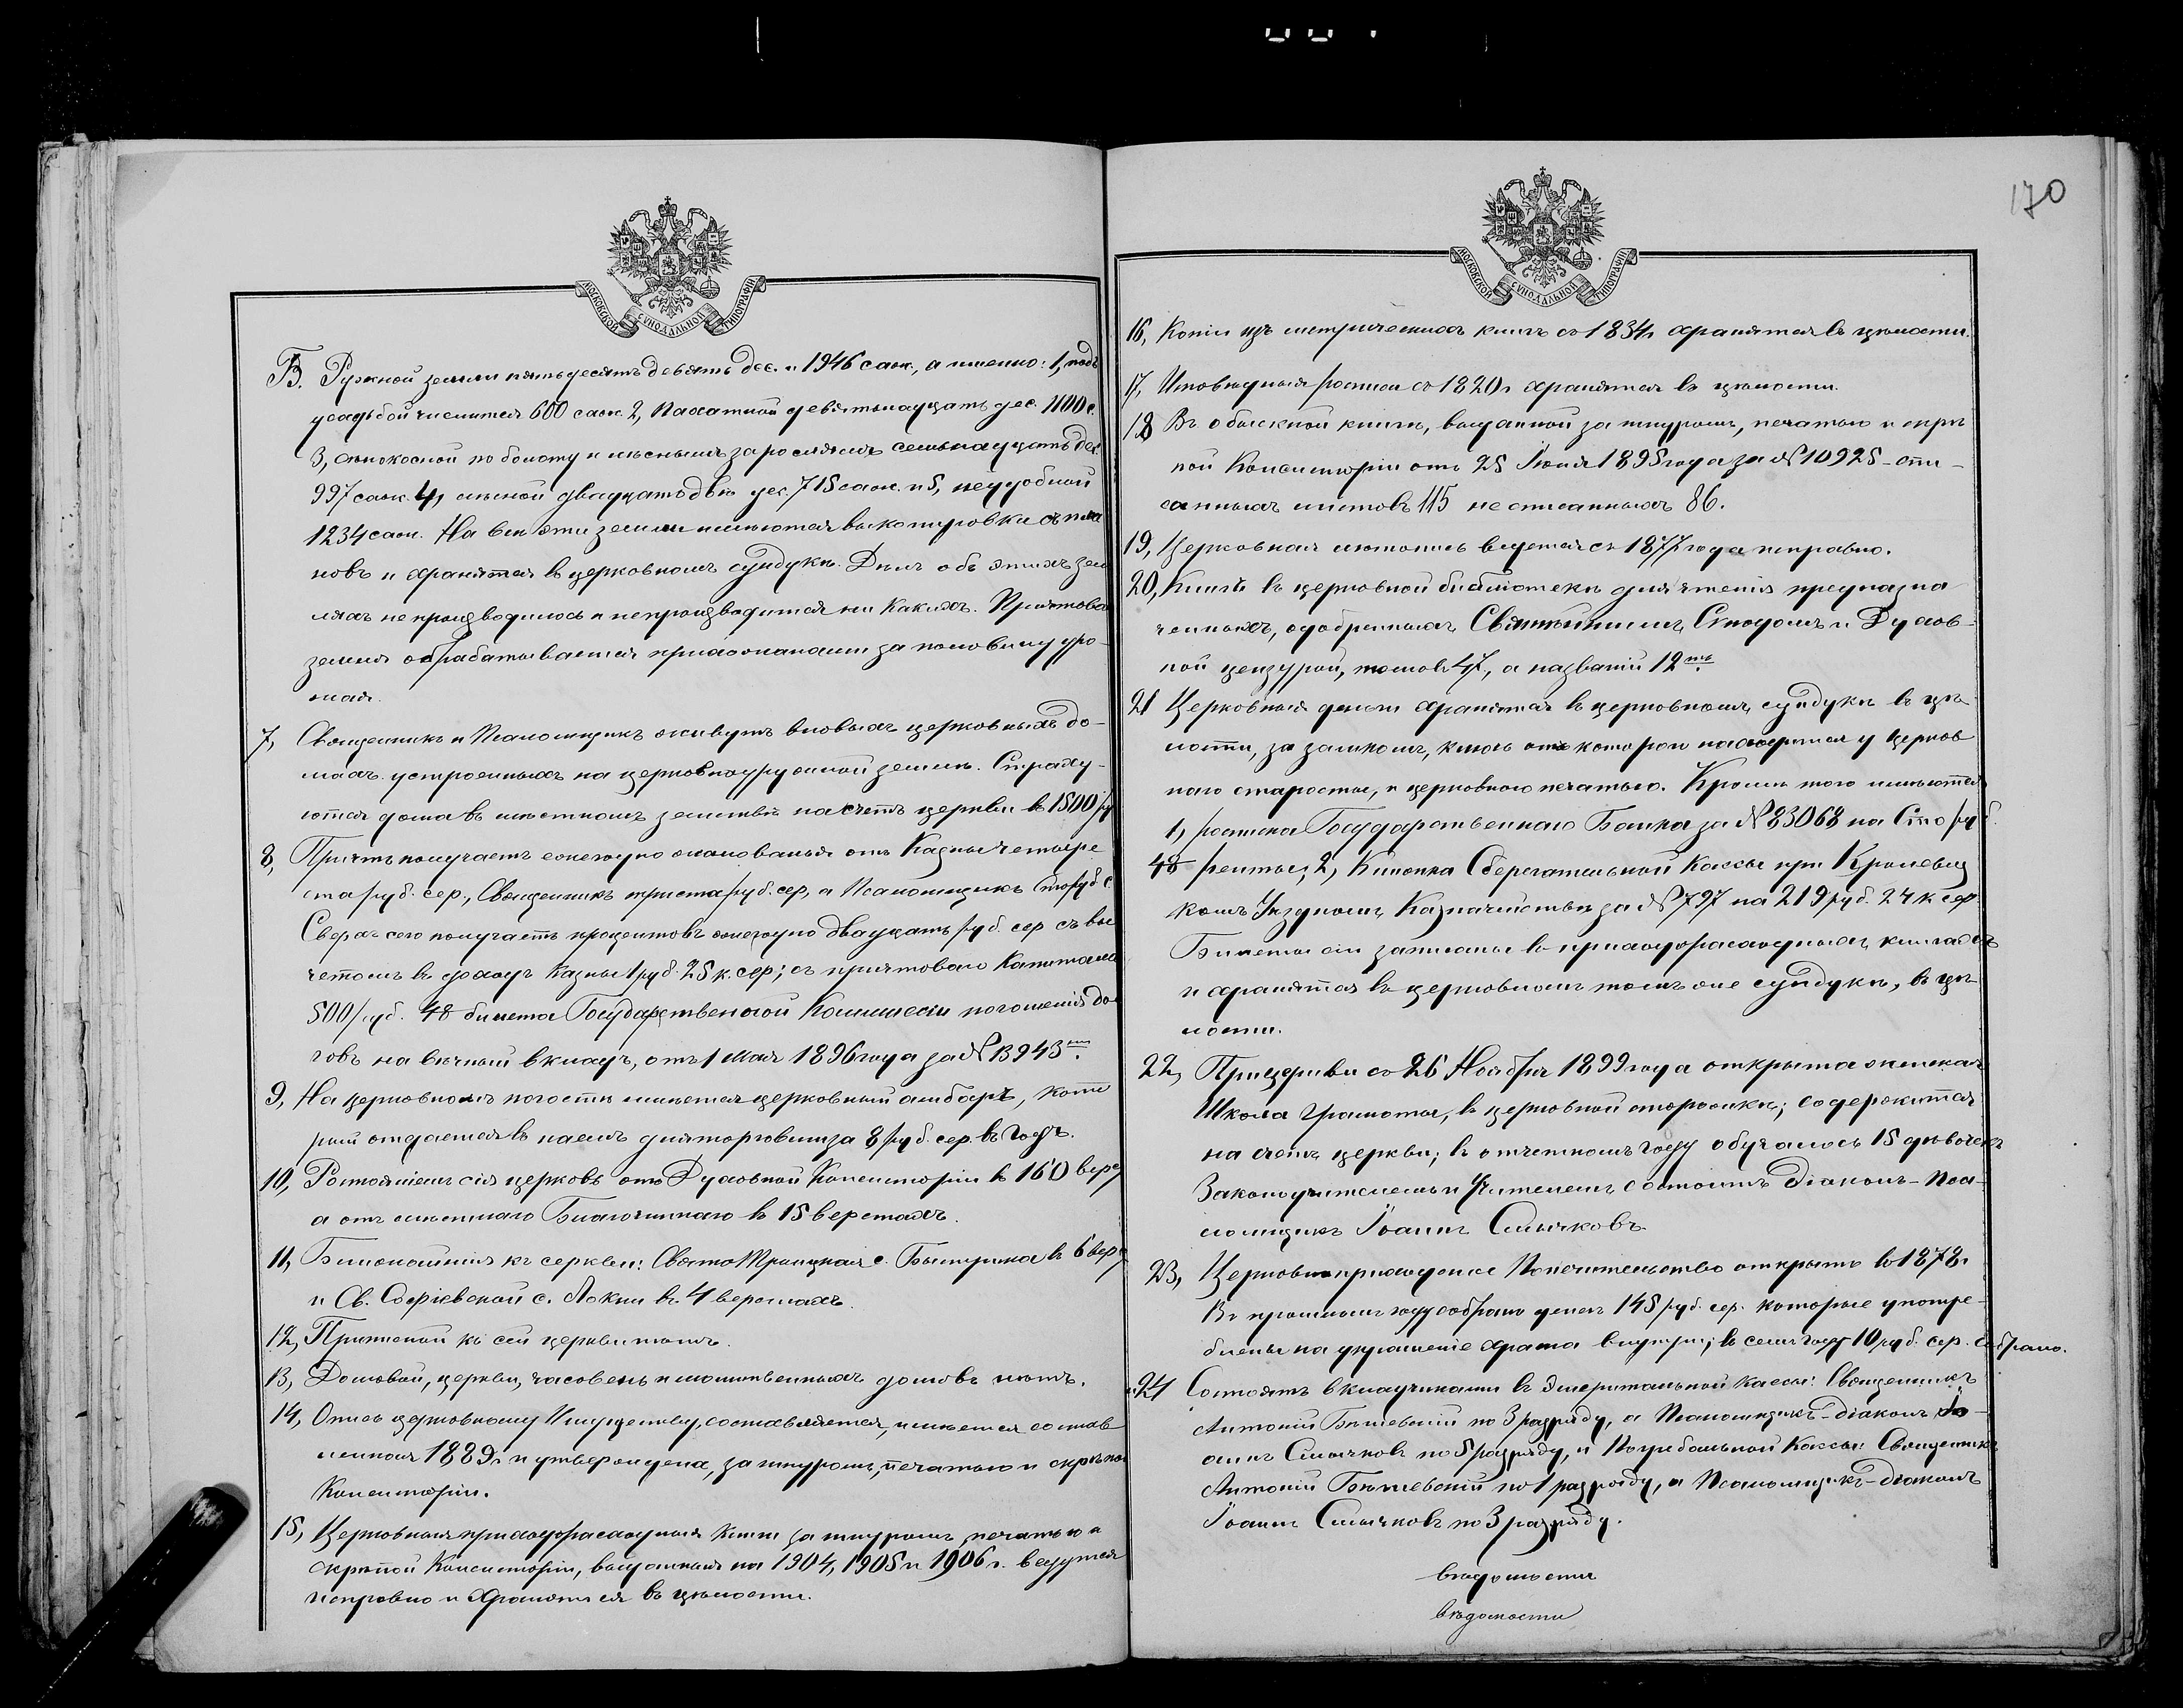 170
МОСКОВСКОЙ СѴНОДАЛЬНОЙ ТИПОГРАФІИ
Б. Ружной земли пятьдесятъ девять дес. и 1946 саж., а именно: 1, подъ
усадьбой числится 600 саж. 2, Пахатной девятьнадцать дес. 1100 с.
3, сѣнокосной по болоту и лѣснымъ зарослямъ семьнадцать дес.
997 саж. 4, лѣсной двадцать двѣ дес. 715 саж. и 5, неудобной
1234 саж. На всѣ эти земли имѣются выкопировки съ пла
новъ и хранятся въ церковномъ сундукѣ. Дѣлъ объ этихъ зем
ляхъ не производилось и непроизводится ни какихъ. Причтовая
земля обрабатывается прихожанами за половину уро-
жая.
7, Священникъ и Псаломщикъ живутъ въ новыхъ церковныхъ до-
махъ устроенныхъ на церковноружной землѣ. Страху-
ются дома въ мѣстномъ земствѣ на счетъ церкви въ 1500 ру
8, Причтъ получаетъ ежегодно жалованья отъ Казны четыре
ста руб. сер., Священникъ триста руб. сер, а Псаломщикъ Сто руб. с
Сверхъ сего получаетъ процентовъ ежегодно двадцать руб. сер съ вы
четомъ въ доходъ Казны 1 руб. 25 к. сер; съ причтоваго Капитала
500 руб. 4% билета Государственной Коммиссіи погашенія дол
говъ на вѣчный вкладъ, отъ 1 Мая 1896 года за № 13943
9, На церковномъ погостѣ имѣется церковный амбаръ, кото
рый отдается въ наемъ для торговли за 8 руб. сер. въ годъ.
10, Розтояніемъ сія церковь отъ Духовной Консисторіи въ 160 вер
а отъ мѣстнаго Благочиннаго въ 15 верстахъ.
11, Ближайшія къ серкви: Свято Троицкая с. Быстрика въ 6 вер
и Св. Софіевской с. Локни въ 4 верстахъ.
12, Приписной къ сей церкви нѣтъ.
13, Домовой, церкви, часовень и молитвенныхъ домовъ нѣтъ.
14, Опись церковному Имуществу, составляется, имѣется состав
ленная 1889 г и утверждена, за шнуромъ, печатью и скрѣпою
Консисторіи.
15, Церковныя приходорасходныя Книги за шнуромъ, печатью и
скрѣпой Консисторіи, выданныя на 1904, 1905 и 1906 г. ведутся
исправно и хранятся въ цѣлости.
МОСКОВСКОЙ СѴНОДАЛЬНОЙ ТИПОГРАФІИ
16, Копіи изъ метрическихъ книгъ съ 1834 г. хранятся въ цѣлости.
17, Исповѣдныя росписи съ 1820 г хранятся въ цѣлости.
18 Въ обыскной книгѣ, выданной за шнуромъ, печатью и скрѣ
пой Консисторіи отъ 25 Іюня 1895 года за № 10925 - опи-
санныхъ листовъ 115 не описанныхъ 86.
19, Церковная лѣтопись ведется съ 1877 года исправно.
20, Книгъ въ церковной библіотекѣ для чтенія предназна
ченныхъ, одобренныхъ Святѣйшимъ Сѵнодомъ и Духов-
ной цензурой, томовъ 47, а названій 12
21 Церковныя деньги хранятся въ церковномъ сундукѣ въ цѣ-
лости, за замкомъ, ключъ отъ котораго находится у церков
наго старосты, и церковною печатью. Кромѣ того имѣются
1, росписка Государственнаго Банка за № 83068 на Сто руб.
4% ренты; 2, Книжка Сберегательной Кассы при Кролевец
комъ Уѣздномъ Казначействѣ за № 797 на 219 руб. 24 к сер.
Билеты сіи записаны въ приходорасходныхъ книгахъ
и хранятся въ церковномъ томъ же сундукѣ, въ цѣ-
лости.
22, При церкви съ 26 Ноября 1899 года открыта женская
Школа Грамоты, въ церковной сторожкѣ; содержится
на счетъ церкви; въ отчетномъ году обучалось 15 дѣвочекъ
Законоучителемъ и Учителемъ состоитъ Діаконъ-Пса-
ломщикъ Іоаннъ Смычковъ
23, Церковноприходское Попечительство открыто въ 1878 г
Въ прошломъ году собрано денегъ 145 руб. сер. которые употре-
блены на украшеніе храма внутри; въ семъ году 10 руб. сер. собрано.
24 Состоятъ вкладчиками въ Эмеритальной кассы: Священникъ
Антоній Бѣтевскій по 3 разряду, а Псаломщикъ-діаконъ Іо-
аннъ Смычковъ по 5 разряду, и Погребальной Кассы: Священникъ
Антоній Бѣтевскій по 1 разряду, а Псаломщикъ-діаконъ
Іоаннъ Смычковъ по 3 разряду.
вѣдомости
вѣдомости